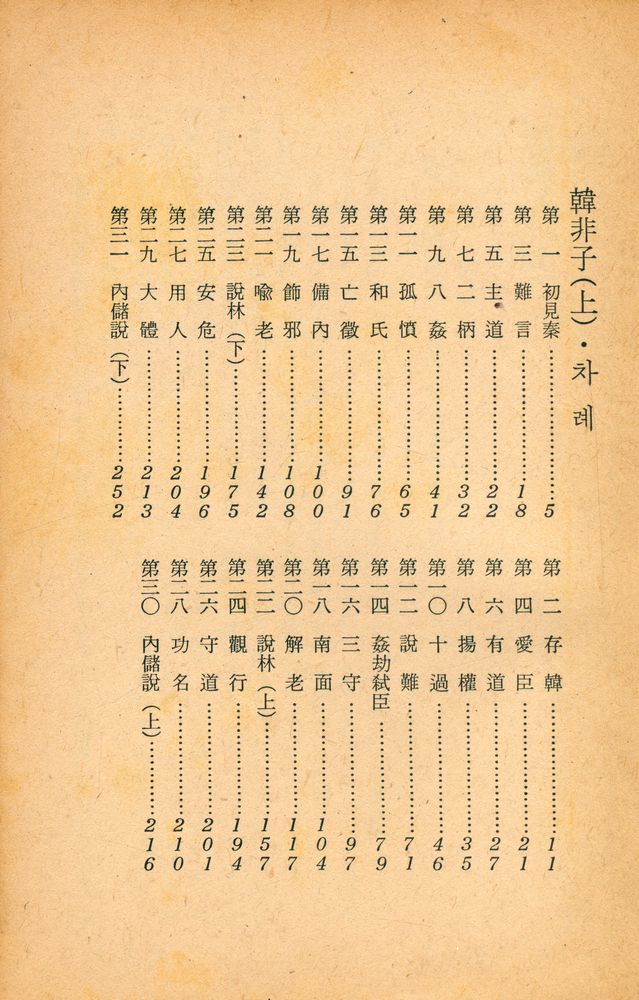 韓非子(上)·차례
第一 初見秦……5
第二 存韓……11
第三 難言……18
第四 愛臣……21
第五 主道……22
第六 有道……27
第七 二柄……32
第八 揚權……35
第九 八姦……41
第一〇 十過……46
第一一 孤憤……65
第一二 說難……71
第一三 和氏……76
第一四 姦劫弑臣……79
第一五 亡徵……91
第一六 三守……97
第一七 備內……100
第一八 南面……104
第一九 飾邪……108
第二〇 解老……117
第二一 喩老……142
第二二 說林(上)……157
第二三 說林(下)……175
第二四 觀行……194
第二五 安危……196
第二六 守道……201
第二七 用人……204
第二八 功名……210
第二九 大體……213
第三〇 內儲說(上)……216
第三一 內儲說(下)……252